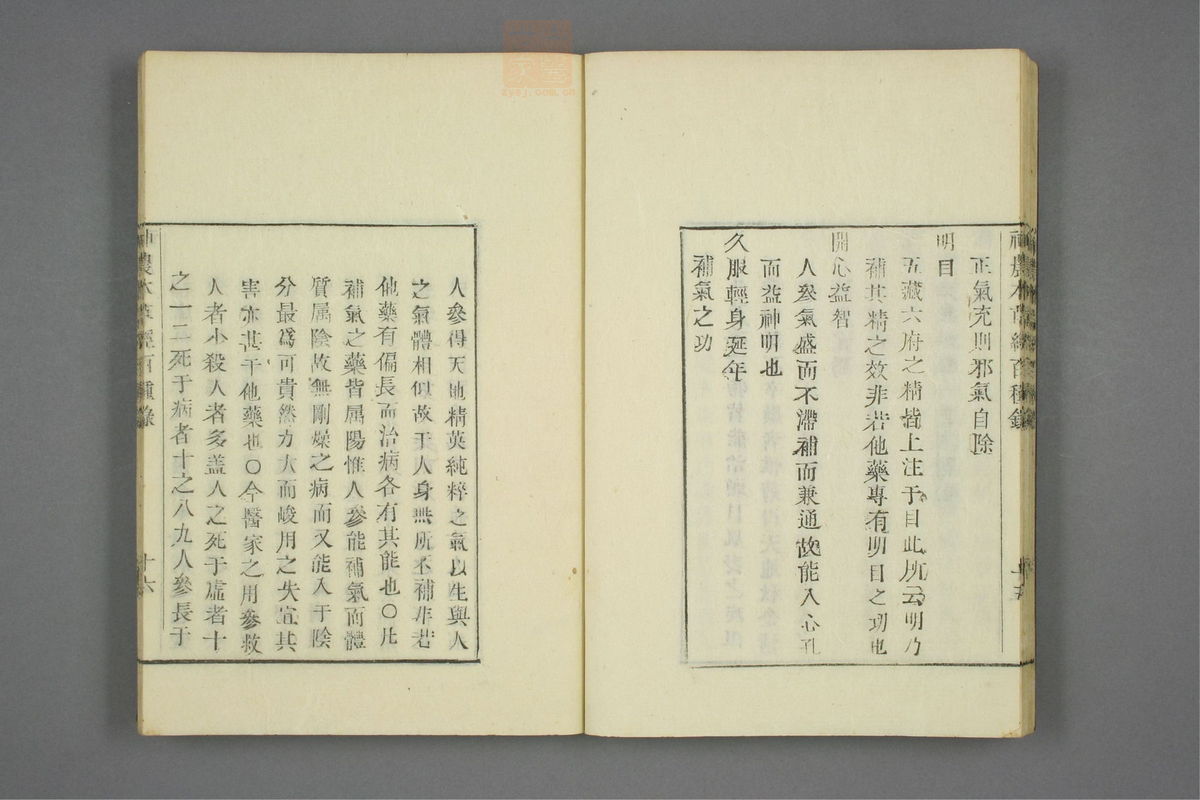 神農本草經百種錄
十五
正氣充則邪氣自除
明目
五藏六府之精皆上注于目此所云明乃
補其精之效非若他藥專有明目之功也
開心益智
人參氣盛而不滯補而兼通故能入心孔
而益神明也
久服輕身延年
補氣之功
人參得天地精英純粹之氣以生與人
之氣體相似故于人身無所不補非若
他藥有偏長而治病各有其能也○凡
補氣之藥皆属陽惟人參能補氣而體
質属陰故無剛燥之病而又能入于陰
分最為可貴然力大而峻用之失宜其
害亦甚于他藥也○今醫家之用參救
人者少殺人者多盖人之死于虛者十
之一二死于病者十之八九人參長于
神農本草經百種錄
十六
zysj.com.cn